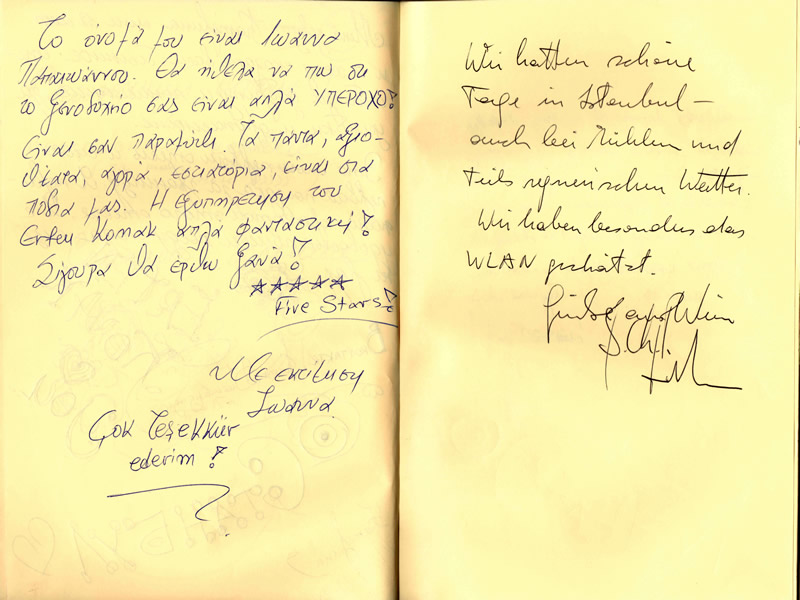 Το όνομά μου είναι Ιωάννα
Παπαϊωάννου. Θα ήθελα να πω ότι
το ξενοδοχείο σας είναι απλά ΥΠΕΡΟΧΟ!
Είναι σαν παραμύθι. Τα πάντα, αξιο-
θέατα, αγορά, εστιατόρια, είναι στα
πόδια μας. Η εξυπηρέτηση του
Erten Konak απλά φανταστική!
Σίγουρα θα έρθω ξανά!
★★★★★
Five Stars!
Με εκτίμηση
Ιωάννα
Çok Teşekkür
ederim!
Wir hatten schöne
Tage in Istanbul –
auch bei kühlem und
teils regnerischem Wetter.
Wir haben besonders das
WLAN geschätzt.
Wien